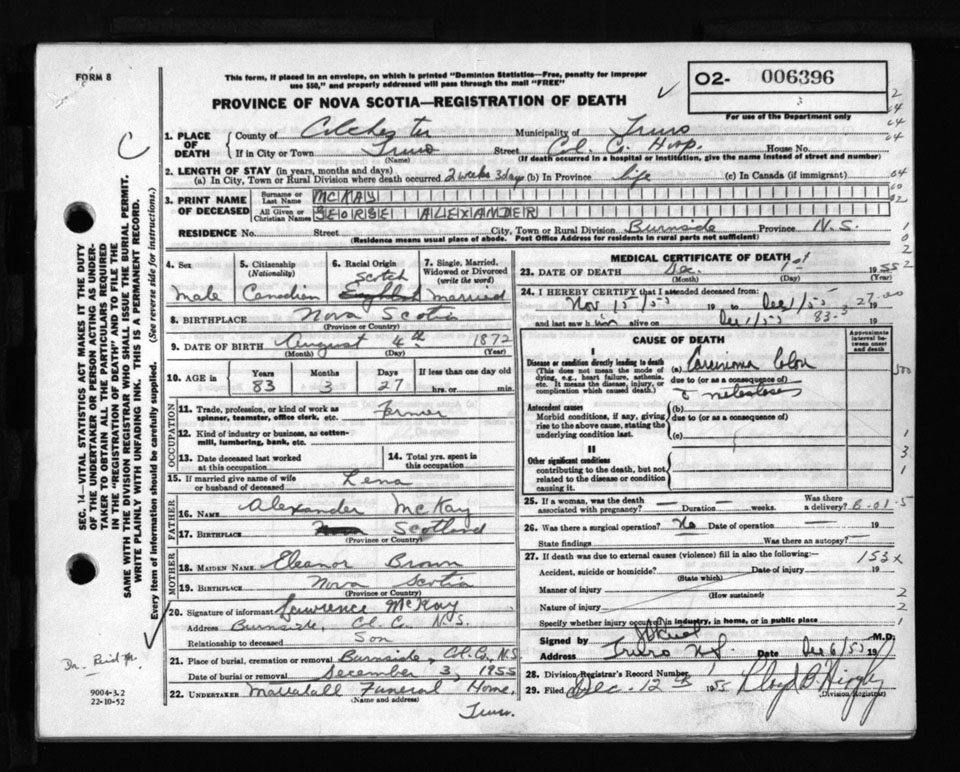 FORM 8
This form, if placed in an envelope, on which is printed "Dominion Statistics—Free, penalty for improper
use $50," and properly addressed will pass through the mail "FREE"
02- 006396
PROVINCE OF NOVA SCOTIA—REGISTRATION OF DEATH
For use of the Department only
1. PLACE OF DEATH
County of Colchester Municipality of Truro
If in City or Town Truro Street Col. Co. Hosp. House No.
(Name) (If death occurred in a hospital or institution, give the name instead of street and number)
2. LENGTH OF STAY (in years, months and days)
(a) In City, Town or Rural Division where death occurred 2 weeks 3 days (b) In Province life (c) In Canada (if immigrant)
3. PRINT NAME OF DECEASED
Surname or Last Name McKAY
All Given or Christian Names GEORGE ALEXANDER
RESIDENCE No. Street City, Town or Rural Division Burnside Province N.S.
(Residence means usual place of abode. Post Office Address for residents in rural parts not sufficient)
4. Sex
Male
5. Citizenship (Nationality)
Canadian
6. Racial Origin
Scotch
7. Single, Married, Widowed or Divorced (write the word)
married
8. BIRTHPLACE Nova Scotia
(Province or Country)
9. DATE OF BIRTH August 4th 1872
(Month) (Day) (Year)
10. AGE in
Years Months Days If less than one day old
83 3 27 hrs. or min.
OCCUPATION
11. Trade, profession, or kind of work as spinner, teamster, office clerk, etc. Farmer
12. Kind of industry or business, as cotton-mill, lumbering, bank, etc.
13. Date deceased last worked at this occupation
14. Total yrs. spent in this occupation
15. If married give name of wife or husband of deceased Lena
FATHER
16. NAME Alexander McKay
17. BIRTHPLACE Scotland
(Province or Country)
MOTHER
18. MAIDEN NAME Eleanor Brown
19. BIRTHPLACE Nova Scotia
(Province or Country)
20. Signature of informant Lawrence McKay
Address Burnside, Col. Co. N.S.
Relationship to deceased Son
21. Place of burial, cremation or removal Burnside, Col. Co., N.S.
Date of burial or removal December 3, 1955
22. UNDERTAKER Funeral Home,
(Name and address)
Truro.
MEDICAL CERTIFICATE OF DEATH
23. DATE OF DEATH Dec. 1st 1955
(Month) (Day) (Year)
24. I HEREBY CERTIFY that I attended deceased from:
Nov 15/55 19 to Dec 1/55 19
and last saw him alive on Dec 1/55 19
83-3-27-00
CAUSE OF DEATH
Approximate interval between onset and death
I
Disease or condition directly leading to death
(This does not mean the mode of dying, e.g., heart failure, asthenia, etc. It means the disease, injury, or complication which caused death.)
(a) Carcinoma Colon
due to (or as a consequence of)
Antecedent causes
Morbid conditions, if any, giving rise to the above cause, stating the underlying condition last.
(b)
due to (or as a consequence of)
(c)
II
Other significant conditions
contributing to the death, but not related to the disease or condition causing it.
25. If a woman, was the death associated with pregnancy? — Duration — weeks. Was there a delivery?
26. Was there a surgical operation? No Date of operation — 19
State findings Was there an autopsy? —
27. If death was due to external causes (violence) fill in also the following:—
Accident, suicide or homicide? Date of injury 19
(State which)
153x
Manner of injury
(How sustained)
Nature of injury
Specify whether injury occurred in industry, in home, or in public place
Signed by M.D.
Address Truro N.S. Date Dec 6/55 19
28. Division Registrar's Record Number
29. Filed Dec. 12th 1955
(Division Registrar)
SEC. 14—VITAL STATISTICS ACT MAKES IT THE DUTY
OF THE UNDERTAKER OR PERSON ACTING AS UNDER-
TAKER TO OBTAIN ALL THE PARTICULARS REQUIRED
IN THE "REGISTRATION OF DEATH" AND TO FILE THE
SAME WITH THE DIVISION REGISTRAR WHO SHALL ISSUE THE BURIAL PERMIT.
WRITE PLAINLY WITH UNFADING INK. THIS IS A PERMANENT RECORD.
Every item of information should be carefully supplied. (See reverse side for instructions.)
9004-3.2
22-10-52